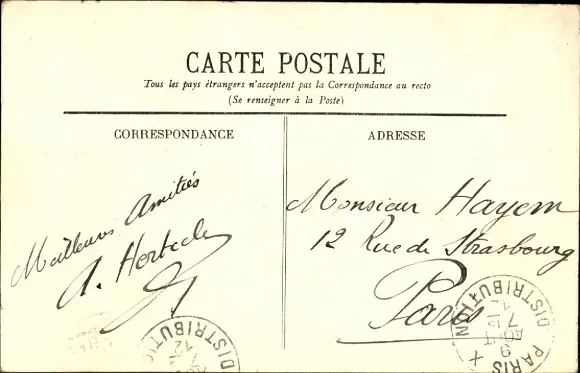 CARTE POSTALE
Tous les pays étrangers n'acceptent pas la Correspondance au recto
(Se renseigner à la Poste)
CORRESPONDANCE
Meilleures Amitiés
A.
ADRESSE
Monsieur Hayem
12 Rue de Strasbourg
Paris
DISTRIBUTION
PARIS
DISTRIBUTION